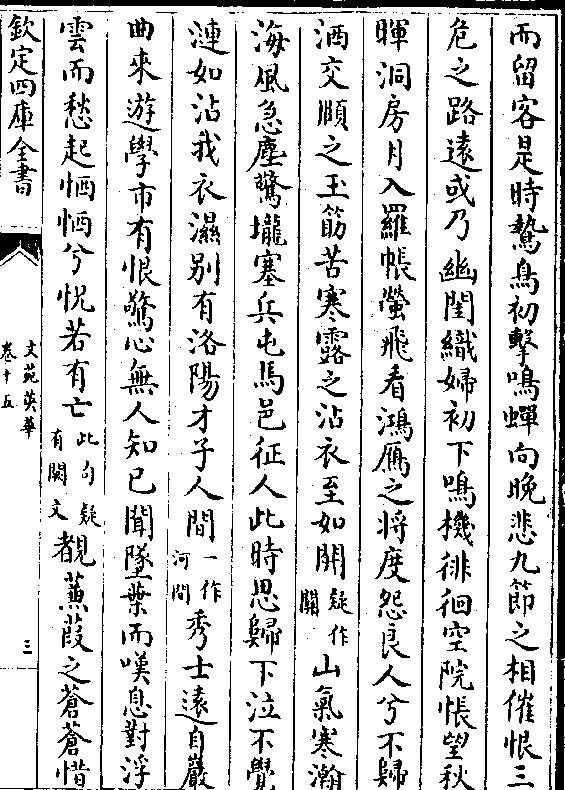 而留客是時鷙鳥初擊鳴蟬向晚悲九節之相催恨三
危之路遠或乃幽閨織婦初下鳴機徘徊空院悵望秋
暉洞房月入羅帳螢飛看鴻鴈之將度怨良人兮不歸
洒交頤之玉筯苦寒露之沾衣至如開疑作關山氣寒瀚
海風急塵驚壠塞兵屯馬邑征人此時思歸下泣不覺
漣如沾我衣濕别有洛陽才子人間一作河間秀士遠自巖
曲來遊學市有恨驚心無人知已聞墜葉而嘆息對浮
雲而愁起恓恓兮怳若有亡此句疑有闕文覩蒹葭之蒼蒼惜
欽定四庫全書
文苑英華
卷十五
三